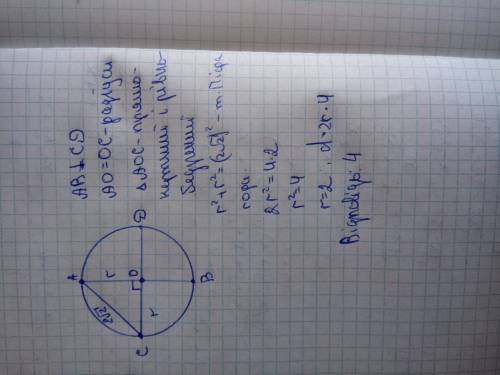 AB⊥CD
AO=OC-радіуси
△AOC-прямо-
кутний і рівно-
бедрений
r²+r²=(2√2)² - т. Піфа
гора
2r²=4·2
r²=4
r=2, d=2r=4
Відповідь: 4
A
r
2√2
O
C
r
D
B